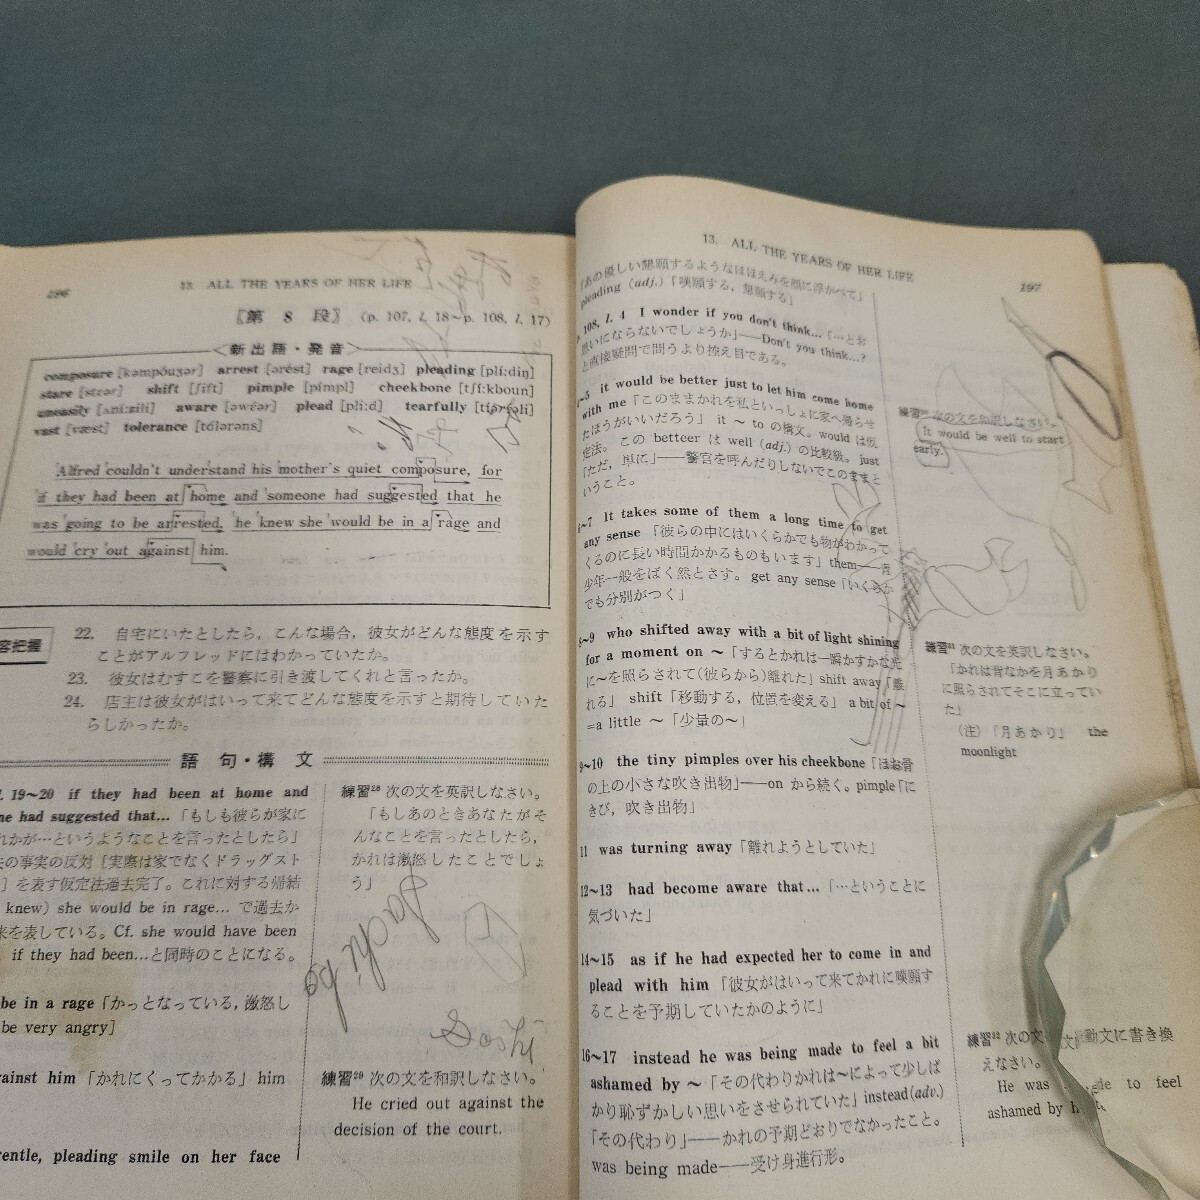 196
13. ALL THE YEARS OF HER LIFE
〖第 8 段〗 (p. 107, l. 18~p. 108, l. 17)
新出語・発音
composure [kəmpóuʒər] arrest [ərést] rage [reidʒ] pleading [plí:diŋ]
stare [stɛər] shift [ʃift] pimple [pímpl] cheekbone [tʃí:kboun]
uneasily [ʌní:zili] aware [əwɛ́ər] plead [pli:d] tearfully [tíərfəli]
vast [væst] tolerance [tɔ́lərəns]
Alfred couldn't understand his mother's quiet composure, for
if they had been at home and someone had suggested that he
was going to be arrested, he knew she would be in a rage and
would cry out against him.
容把握
22. 自宅にいたとしたら, こんな場合, 彼女がどんな態度を示す
ことがアルフレッドにはわかっていたか。
23. 彼女はむすこを警察に引き渡してくれと言ったか。
24. 店主は彼女がはいって来てどんな態度を示すと期待していた
らしかったか。
語句・構文
l. 19~20 if they had been at home and
ne had suggested that... 「もしも彼らが家に
れかが…というようなことを言ったとしたら」
去の事実の反対 [実際は家でなくドラッグスト
] を表す仮定法過去完了。これに対する帰結
knew) she would be in rage... で過去か
来を表している。Cf. she would have been
if they had been...と同時のことになる。
be in a rage 「かっとなっている, 激怒し
be very angry]
gainst him 「かれにくってかかる」 him
gentle, pleading smile on her face
練習²⁸ 次の文を英訳しなさい。
「もしあのときあなたがそ
んなことを言ったとしたら,
かれは激怒したことでしょ
う」
Sachi
Soshi
練習²⁹ 次の文を和訳しなさい。
He cried out against the
decision of the court.
13. ALL THE YEARS OF HER LIFE
197
「あの優しい懇願するようなほほえみを顔に浮かべて」
pleading (adj.) 「嘆願する, 懇願する」
p. 108, l. 4 I wonder if you don't think... 「…とお
思いにならないでしょうか」——Don't you think...?
と直接疑問で問うより控え目である。
4~5 it would be better just to let him come home
with me 「このままかれを私といっしょに家へ帰らせ
たほうがいいだろう」 it ~ to の構文。would は仮
定法。この betteer は well (adj.) の比較級。just
「ただ, 単に」——警官を呼んだりしないでこのままと
いうこと。
6~7 It takes some of them a long time to get
any sense 「彼らの中にはいくらかでも物がわかって
くるのに長い時間かかるものもいます」 them——青
少年一般をばく然とさす。get any sense 「いくらか
でも分別がつく」
8~9 who shifted away with a bit of light shining
for a moment on ~ 「するとかれは一瞬かすかな光
に~を照らされて(彼らから)離れた」 shift away 「離
れる」 shift 「移動する, 位置を変える」 a bit of ~
=a little ~ 「少量の~」
9~10 the tiny pimples over his cheekbone 「ほお骨
の上の小さな吹き出物」——on から続く。pimple 「に
きび, 吹き出物」
11 was turning away 「離れようとしていた」
12~13 had become aware that... 「…ということに
気づいた」
14~15 as if he had expected her to come in and
plead with him 「彼女がはいって来てかれに嘆願す
ることを予期していたかのように」
16~17 instead he was being made to feel a bit
ashamed by ~ 「その代わりかれは~によって少しば
かり恥ずかしい思いをさせられていた」 instead (adv.)
「その代わり」——かれの予期どおりでなかったこと。
was being made——受け身進行形。
練習³⁰ 次の文を和訳しなさい。
It would be well to start
early.
練習³¹ 次の文を英訳しなさい。
「かれは背なかを月あかり
に照らされてそこに立ってい
た」
(注) 「月あかり」 the
moonlight
練習³² 次の文 動文に書き換
えなさい。
He was to feel
ashamed by